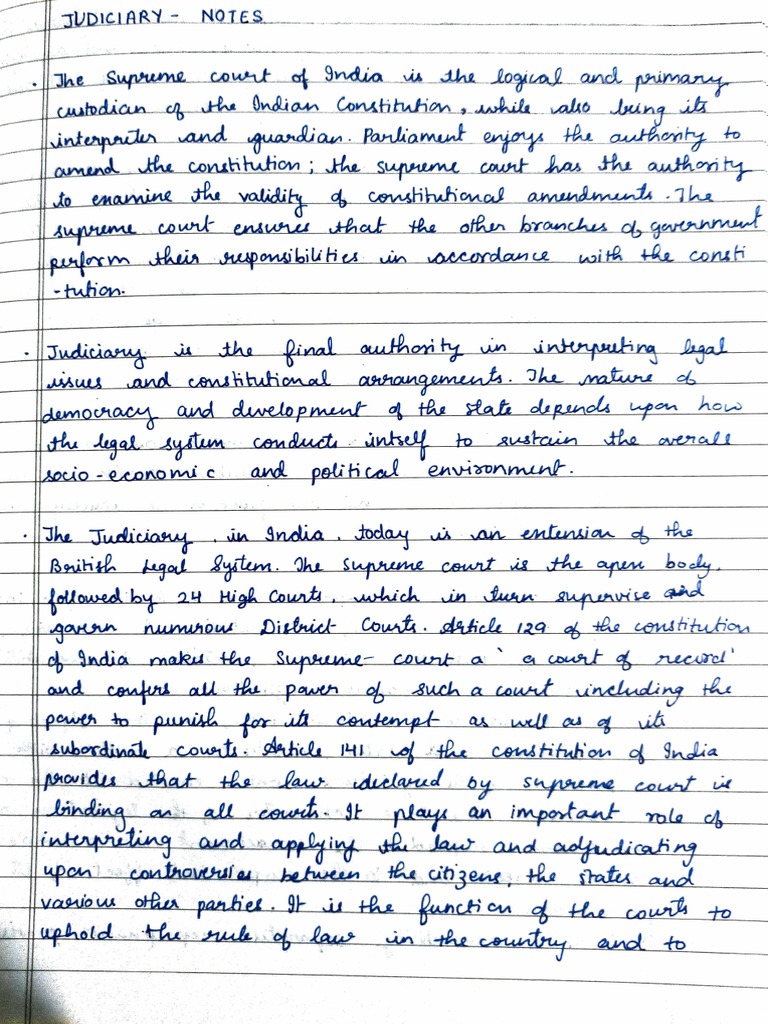 JUDICIARY - NOTES
. The Supreme court of India is the logical and primary
custodian of the Indian Constitution, while also being its
interpreter and guardian. Parliament enjoys the authority to
amend the constitution; the supreme court has the authority
to examine the validity of constitutional amendments. The
supreme court ensures that the other branches of government
perform their responsibilities in accordance with the consti
-tution.
. Judiciary is the final authority in interpreting legal
issues and constitutional arrangements. The nature of
democracy and development of the state depends upon how
the legal system conducts intself to sustain the overall
socio-economic and political environment.
. The Judiciary, in India, today is an extension of the
British Legal System. The Supreme court is the apex body,
followed by 24 High Courts, which in turn supervise and
govern numirous District Courts. Article 129 of the constitution
of India makes the Supreme- court a ' a court of record'
and confirs all the power of such a court including the
power to punish for its contempt as well as of its
subordinate courts. Article 141 of the constitution of India
provides that the law declared by supreme court is
binding on all courts. It plays an important role of
interpreting and applying the law and adjudicating
upon controversies between the citizens, the states and
various other parties. It is the function of the courts to
uphold the rule of law in the country and to